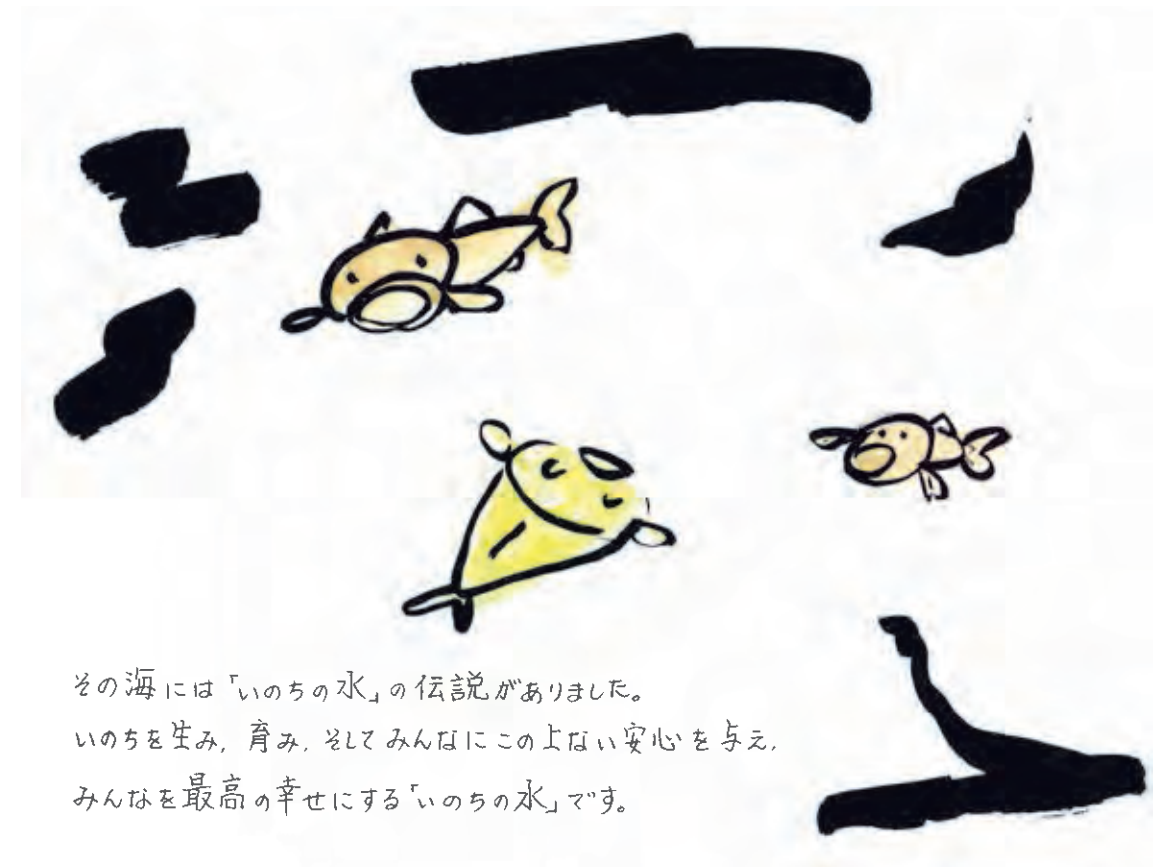 その海には「いのちの水」の伝説がありました。
いのちを生み，育み，そしてみんなにこの上ない安心を与え，
みんなを最高の幸せにする「いのちの水」です。